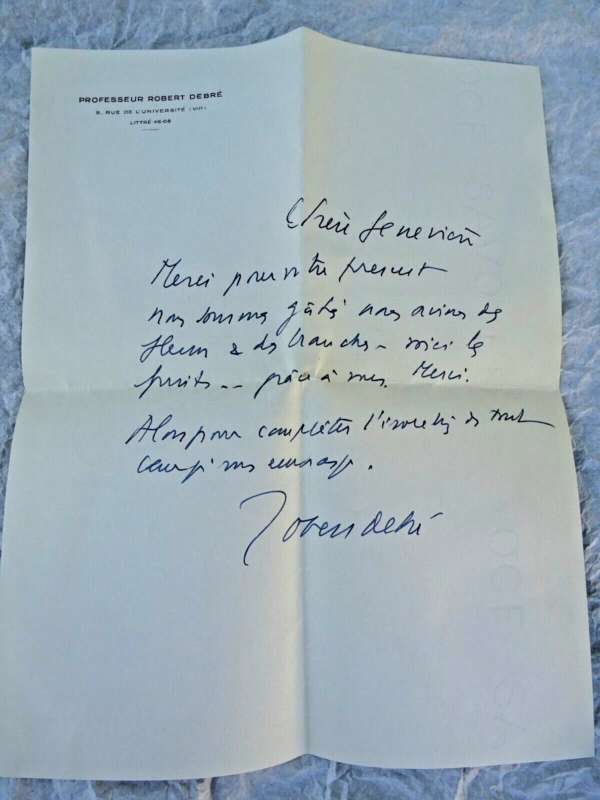 PROFESSEUR ROBERT DEBRÉ
5, RUE DE L'UNIVERSITÉ (VIIe)
LITTRÉ 46-08
Chère Geneviève
Merci pour votre présent
nous sommes gâtés nous avions des
fleurs & des branches - voici les
fruits -- grâce à vous. Merci.
Alors pour compléter de tout
coeur je vous embrasse.
Robert Debré